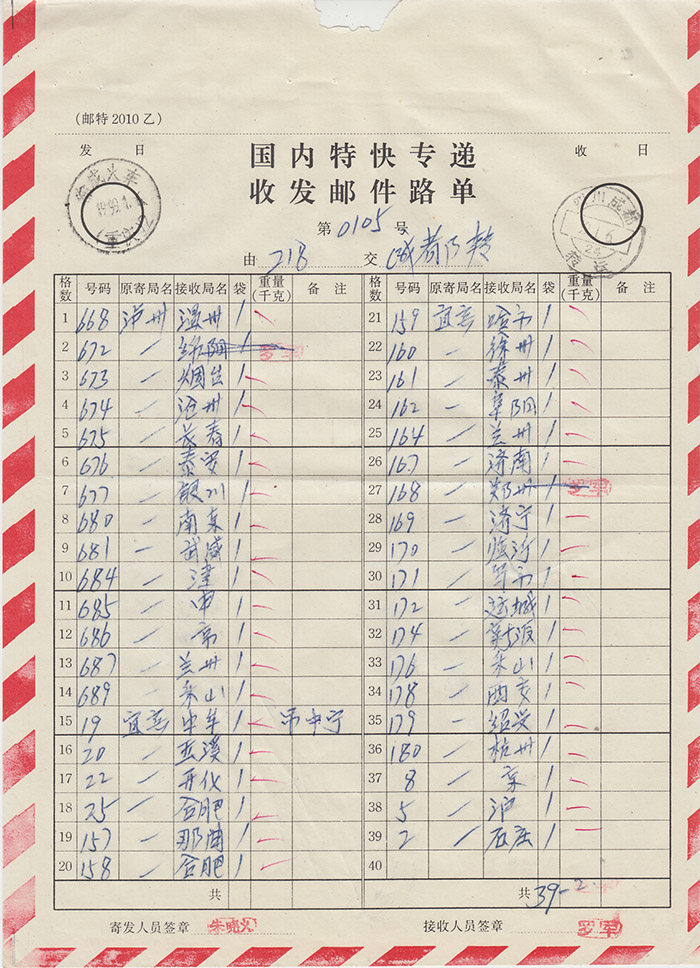 (邮特2010乙)
国内特快专递
收发邮件路单
发 日
收 日
第0105号
由218交
格数 号码 原寄局名 接收局名 袋 重量(千克) 备注
1 668 泸州 温州 1
2 672 一 绵阳 1 罗军
3 673 一 烟台 1
4 674 一 沧州 1
5 675 一 长春 1
6 676 一 泰安 1
7 677 一 银川 1
8 680 一 南京 1
9 681 一 武威 1
10 684 一 津 1
11 685 一 申 1
12 686 一 京 1
13 687 一 兰州 1
14 689 一 乐山 1
15 19 宜宾 中牟 1
16 20 一 巫溪 1
17 22 一 开化 1
18 25 一 合肥 1
19 157 一 1
20 158 一 合肥 1
共
寄发人员签章
格数 号码 原寄局名 接收局名 袋 重量(千克) 备注
21 159 宜宾 哈市 1
22 160 一 徐州 1
23 161 一 泰州 1
24 162 一 阜阳 1
25 164 一 兰州 1
26 167 一 济南 1
27 168 一 郑州 1 罗军
28 169 一 济宁 1
29 170 一 临沂 1
30 171 一 1
31 172 一 运城 1
32 174 一 1
33 176 一 乐山 1
34 178 一 西安 1
35 179 一 绍兴 1
36 180 一 杭州 1
37 8 一 京 1
38 5 一 沪 1
39 2 一 石庄 1
40
共39-2
接收人员签章 罗军